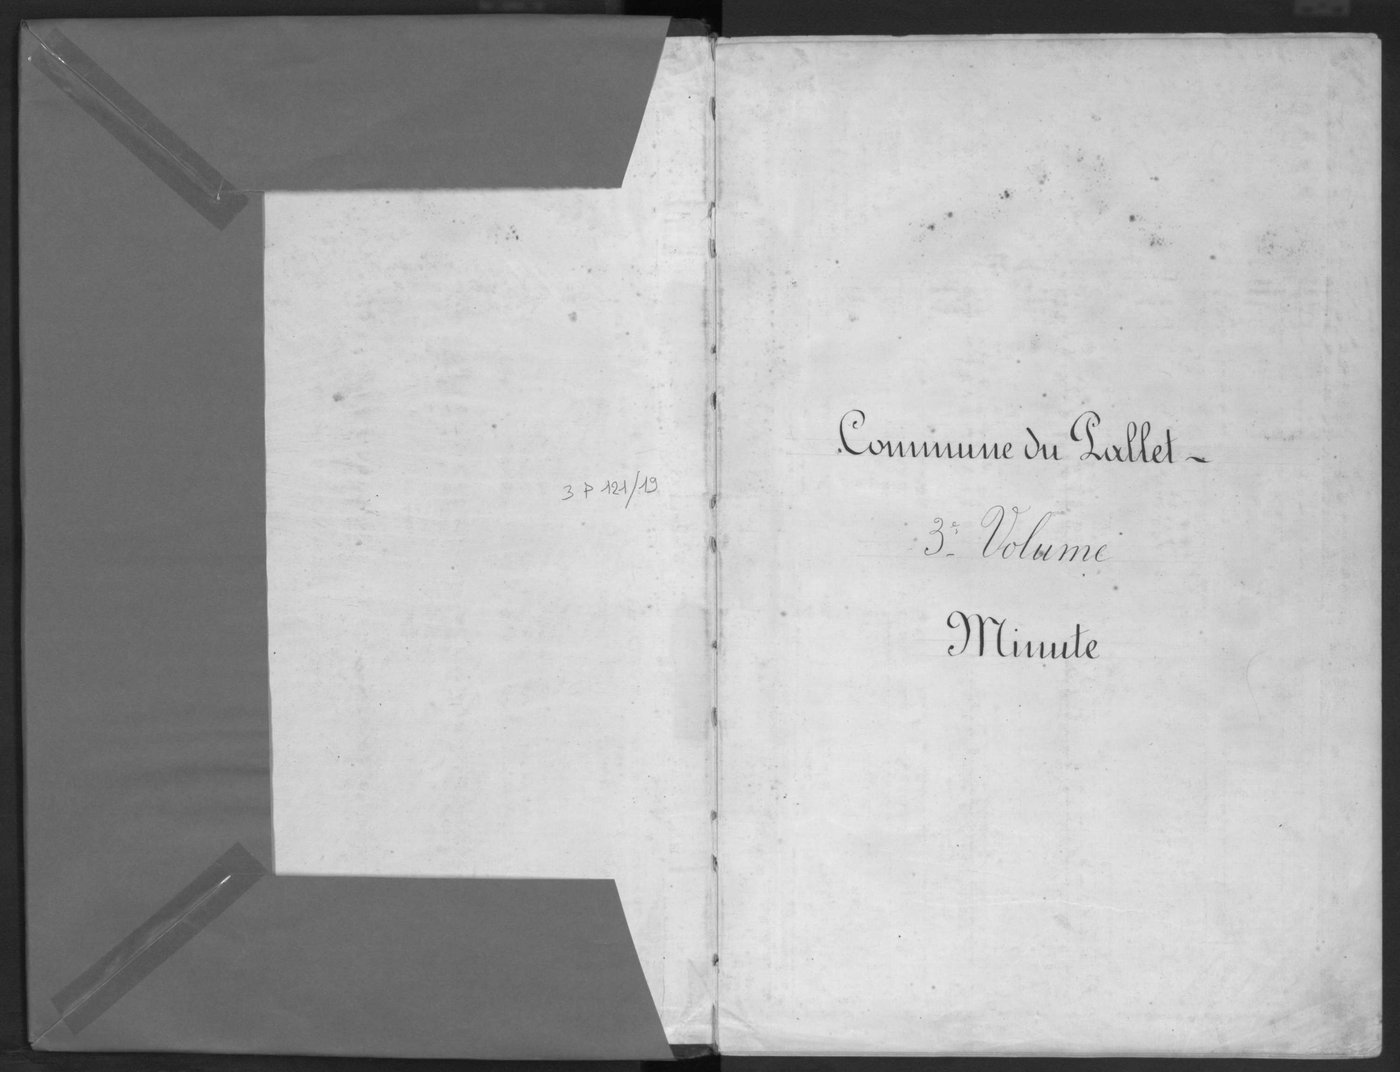 3 P 121/19
Commune du Pallet
3e Volume
Minute